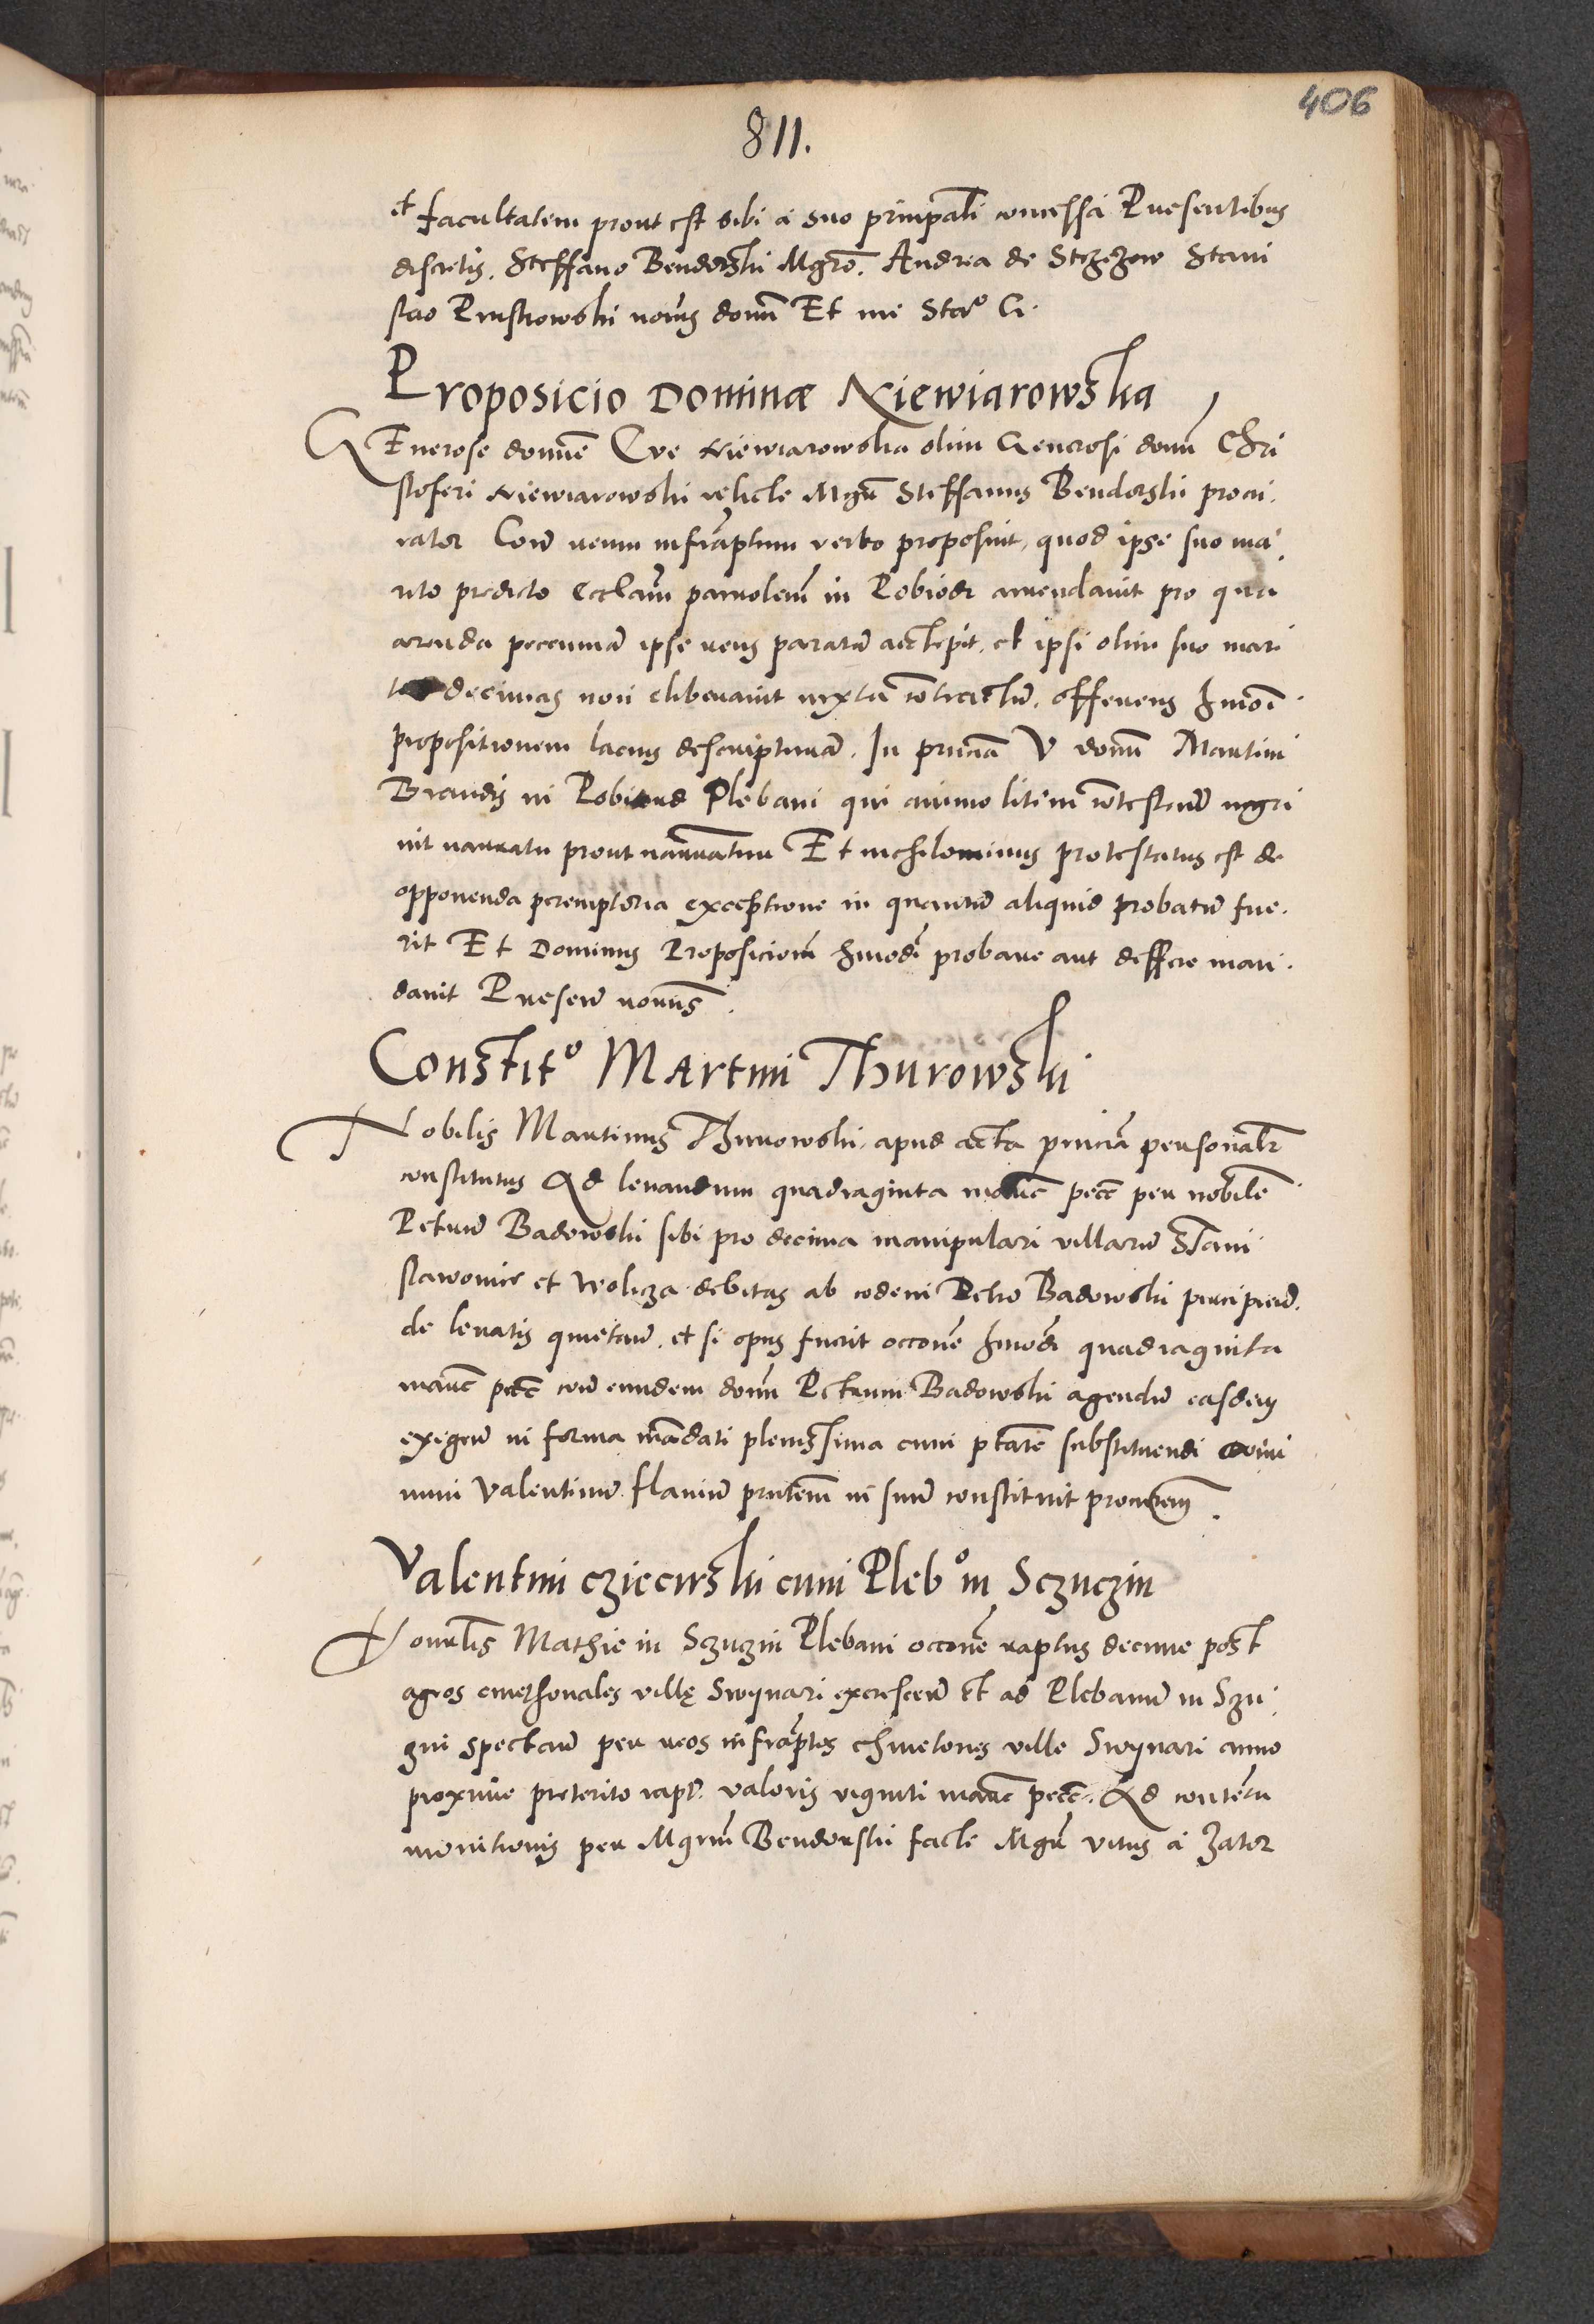 406
811.
et facultatem prout est sibi a suo prinpali concessa Presentibus
discretis. Steffano Bendorski Mgro. Andrea de Strzezow Stani
slao Prustkowski norijs domi Et me Staº G.
Proposicio Dominæ Niewiarowska
GEnerose domne Eve Niewiarowska olim Generosi domi Chri
stoferi Niewiarowski relicte Mgr Steffanus Bendorski procu.
rator Cora reum infrascriptum verbo proposuit, quod ipse suo ma
rito predicto Ecclam parrolem in Robiedr arrendavit pro qua
arenda peccuniam ipse reus paratam accepit, et ipsi olim suo mari
to decimas non eliberavit iuxta contractu. offerens hmoi
propositionem lacius descripturam. In pnciam V domi Martini
Brandis in Plebani qui animo litem contestan negri
vit narrata prout narrantur Et nichilominus protestatus est de
opponenda peremptoria exceptione in quantum aliquid probatum fue.
rit Et Dominus Proposicioem hmodi probare aut deffere man.
davit Presen norijs.
Constitº Martini Thurowski
Nobilis Martinus Thurowski, apud acta pnciam personalr
constitutus Ad levandum quadraginta marc pecc per nobilem
Petrum Badowski sibi pro decima manipulari villarum Stani
slawouice et Wolicza debitas ab eodem Petro Badowski percipiend.
de levatis quietand. et si opus fuerit occone hmodi quadraginta
marc pecc con eundem domi Petrum Badowski agendum easdem
exigend in forma mandati plenissima cum ptate substituendi Domi
num Valentinum flanium pntem in suum constituit procurem.
Valentini cziecirski cum Plebº in Sczuczin
Honorlis Mathie in Sczuczin Plebani occone raptus decime post
agros cmethonales ville Swynari excrescen Et ad Plebanum in Sczu
zin spectan per reos infrascriptos chmetones ville Swynari anno
proxime preterito rapt. valoris viginti marc pecc. Ad contenta
monitionis per Mgrum Bendorski facte Mgr Vitus a Zator